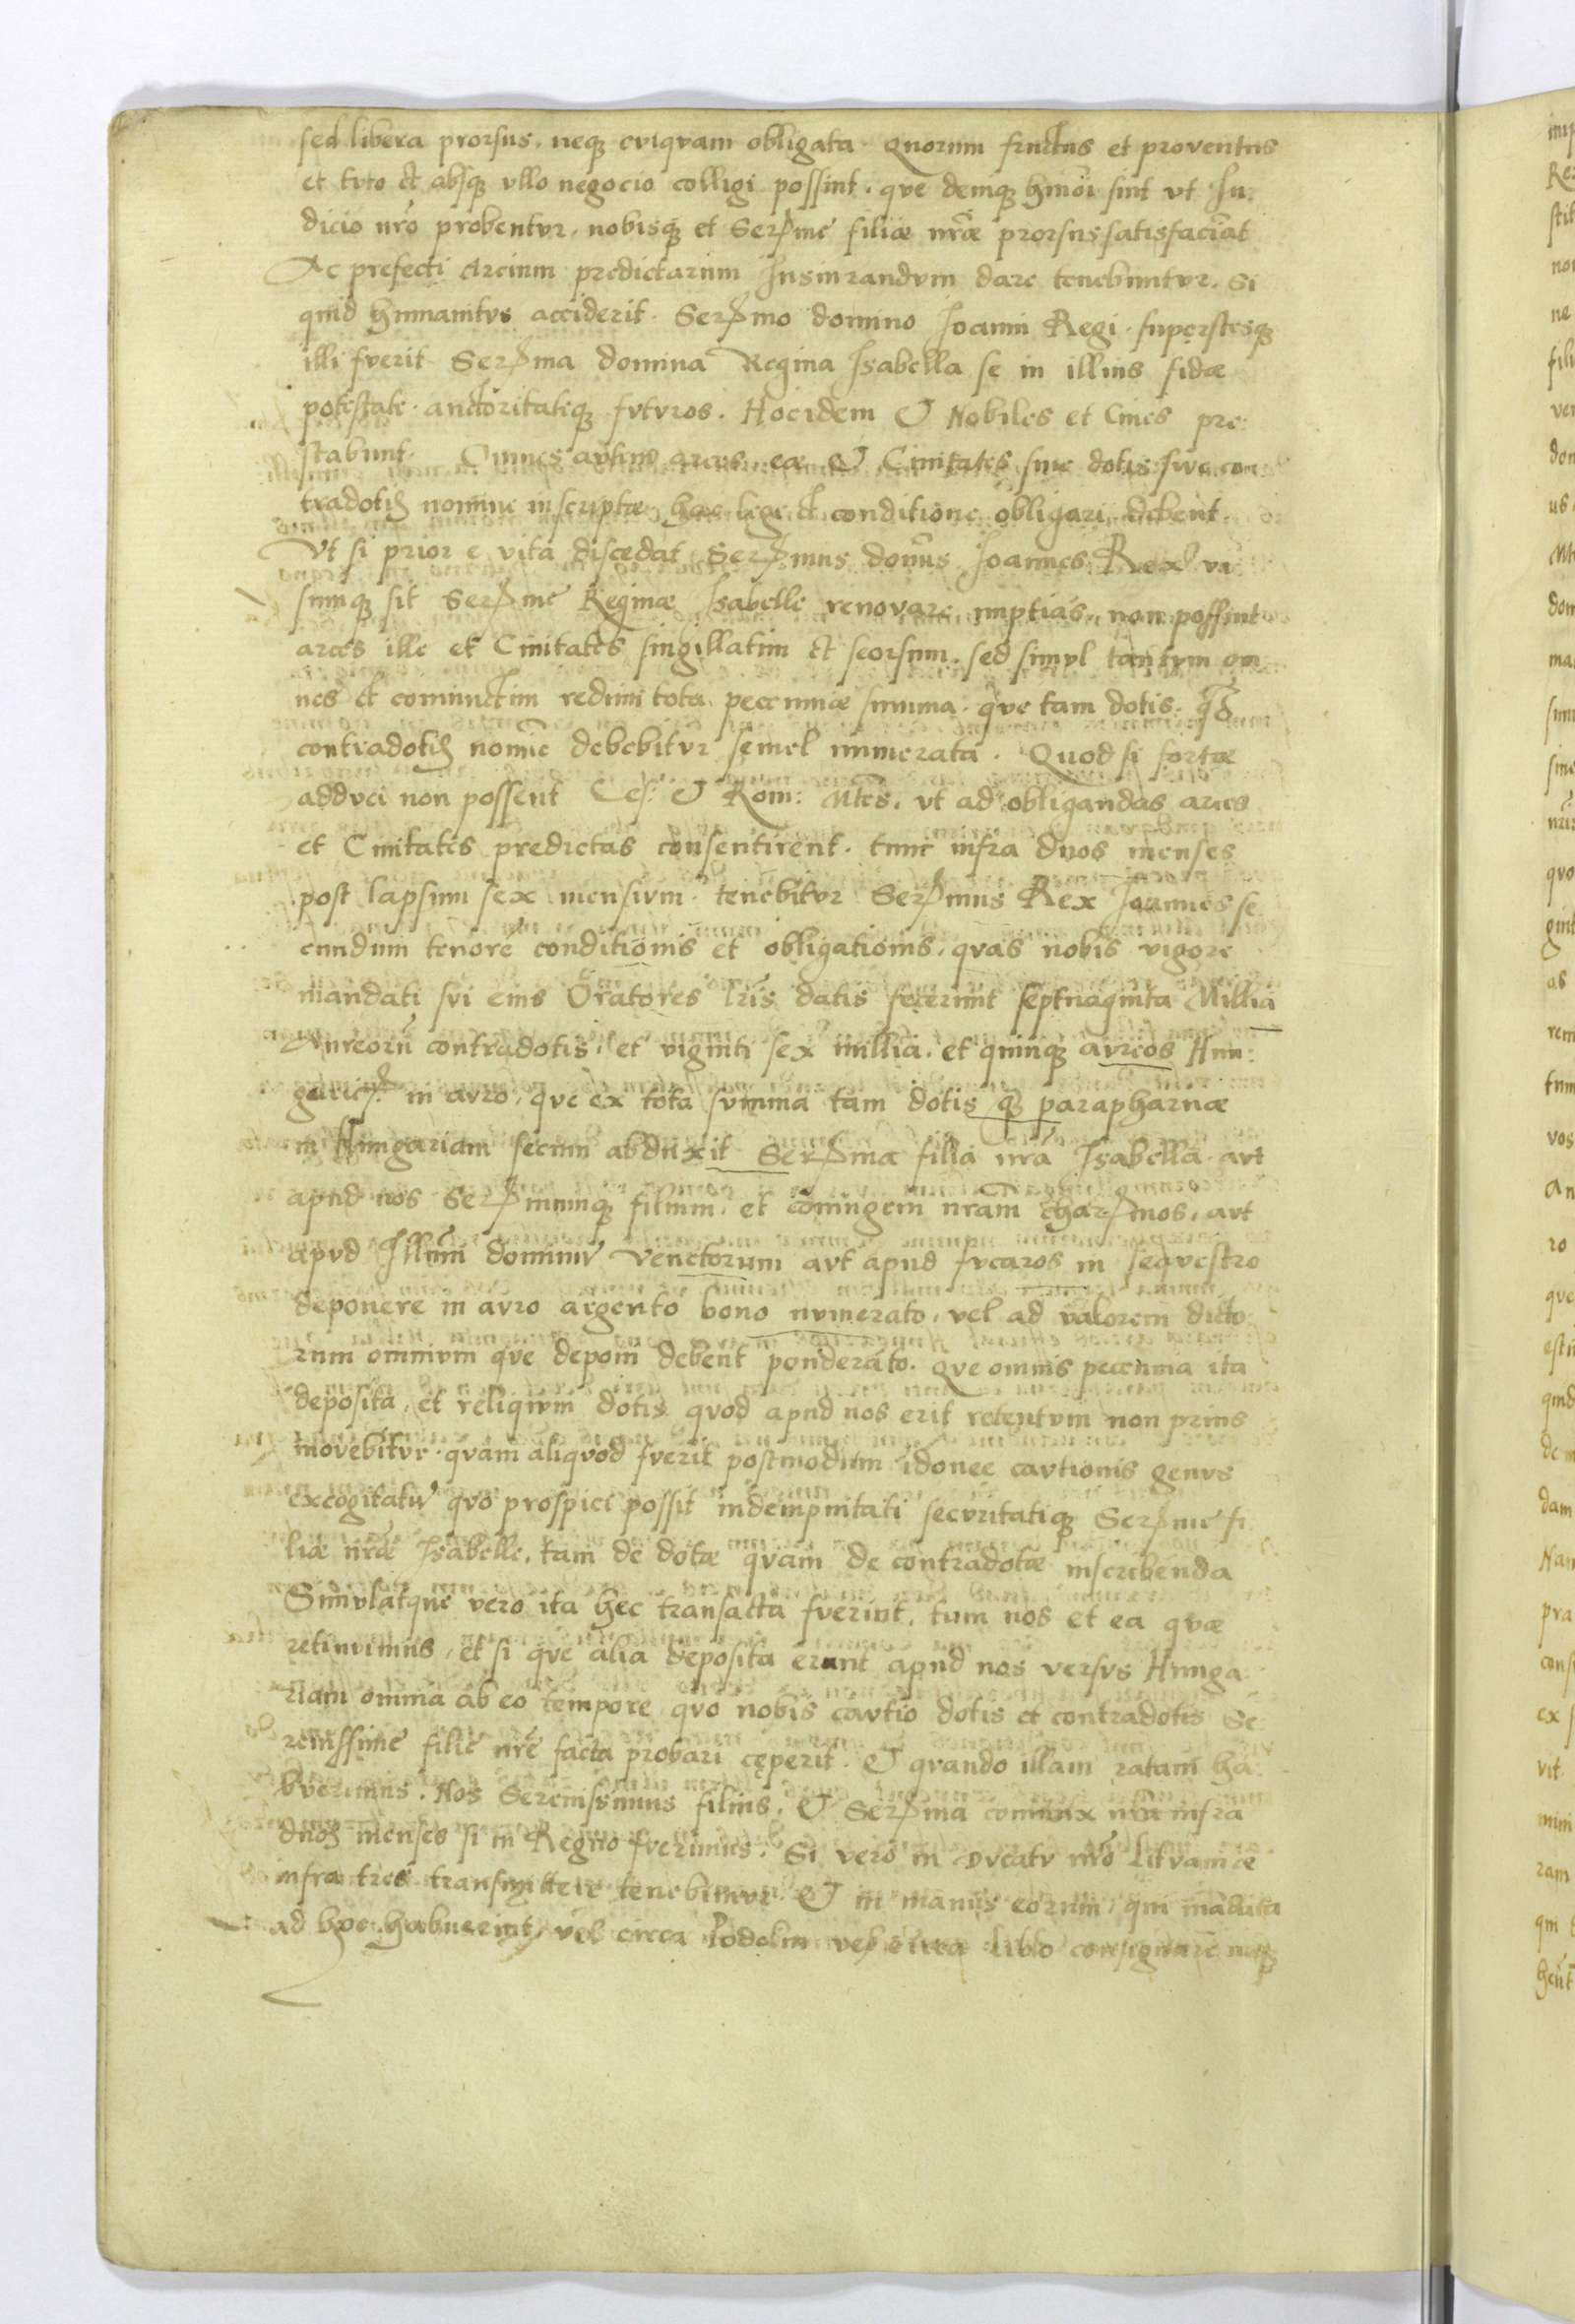 sed libera prorsus. neqꝫ cviqvam obligata quorum fructus et proventus
et tvto et absqꝫ vllo negocio colligi possint. qve deniqꝫ hmoi sint vt Iu
dicio nrõ probentvr. nobisqꝫ et Serme filiæ nrãe prorsus satisfaciãt
Ac prefecti Arcium predictarum Iusiurandvm dare tenebuntvr. Si
quid humanitvs acciderit. Sermo domino Ioanni Regi. superstesqꝫ
illi fverit Serma domina Regina Isabella se in illius fidæ
potestate. auctoritateqꝫ fvtvros. Hocidem & Nobiles et Ciues pre:
stabunt. Omnes avtem arces eæ & Ciuitates siue dotis sive con
tradotis nomine inscriptæ hac lege et conditione obligari debent.
Vt si prior e vita discedat Sermus domûs Ioannes Rex vi
sumqꝫ sit Serme Reginæ Isabelle renovare nuptias, non possint
arces ille et Ciuitates singillatim et seorsum. sed simvl tantvm om
nes et coniunctim redimi tota peccuniæ summa. qve tam dotis. qͣꝫ
contradotis nomiẽ debebitvr semel numerata. Quod si fortæ
addvci non possent Ces: & Rom: Mtẽs. vt ad obligandas arces
et Ciuitates predictas consentirent. tunc infra dvos menses
post lapsum sex mensivm. tenebitvr Sermus Rex Ioannes se
cundum tenorẽ conditionis et obligationis. qvas nobis vigore
mandati svi eius Oratores lrĩs datis fecerunt septuaginta Millia
Aureorũ contradotis. et viginti sex millia. et quinqꝫ avreos Hun:
garicos. in avro, qve ex tota svmma tam dotis qꝫ parapharnæ
in Hungariam secum abduxit Sermæ filia nrã Isabella avt
apud nos Sermumqꝫ filium. et coniugem nrãm charmos. avt
apvd Illũm dominiũ Venetorum avt apud fvcaros in seqvestro
deponere in avro argento bono nvmerato, vel ad valorem dicto
rum omnivm qve deponi debent ponderato. qve omnis peccunia ita
deposita, et reliqivm dotis qvod apud nos erit retentvm non prius
movebitvr. qvam aliqvod fverit postmodum idonee cavtionis genvs
excogitatũ qvo prospici possit indempnitati secvritatiqꝫ Serme fi
liæ nrãe Isabelle. tam de dotæ qvam de contradotæ inscribenda
Simvlatque vero ita hec transacta fverint. tum nos et ea qvæ
retinvimus, et si qve alia deposita erunt apud nos versvs Hunga
riam omnia ab eo tempore qvo nobis cavtio dotis et contradotis Se
renissime filie nrẽ facta probari cęperit. & qvando illam ratam ha
bverimus. Nos Serenissimus filius. & Serma coniunx nrã infra
duos menses si in Regno fverimus. Si vero in Dvcatv nrõ Litvaniæ
infra tres transmittere tenebimvr. & in manus eorum, qui mãdata
ad hoc habuerint, vel circa Podolin vel circa Liblo consignare neqꝫ